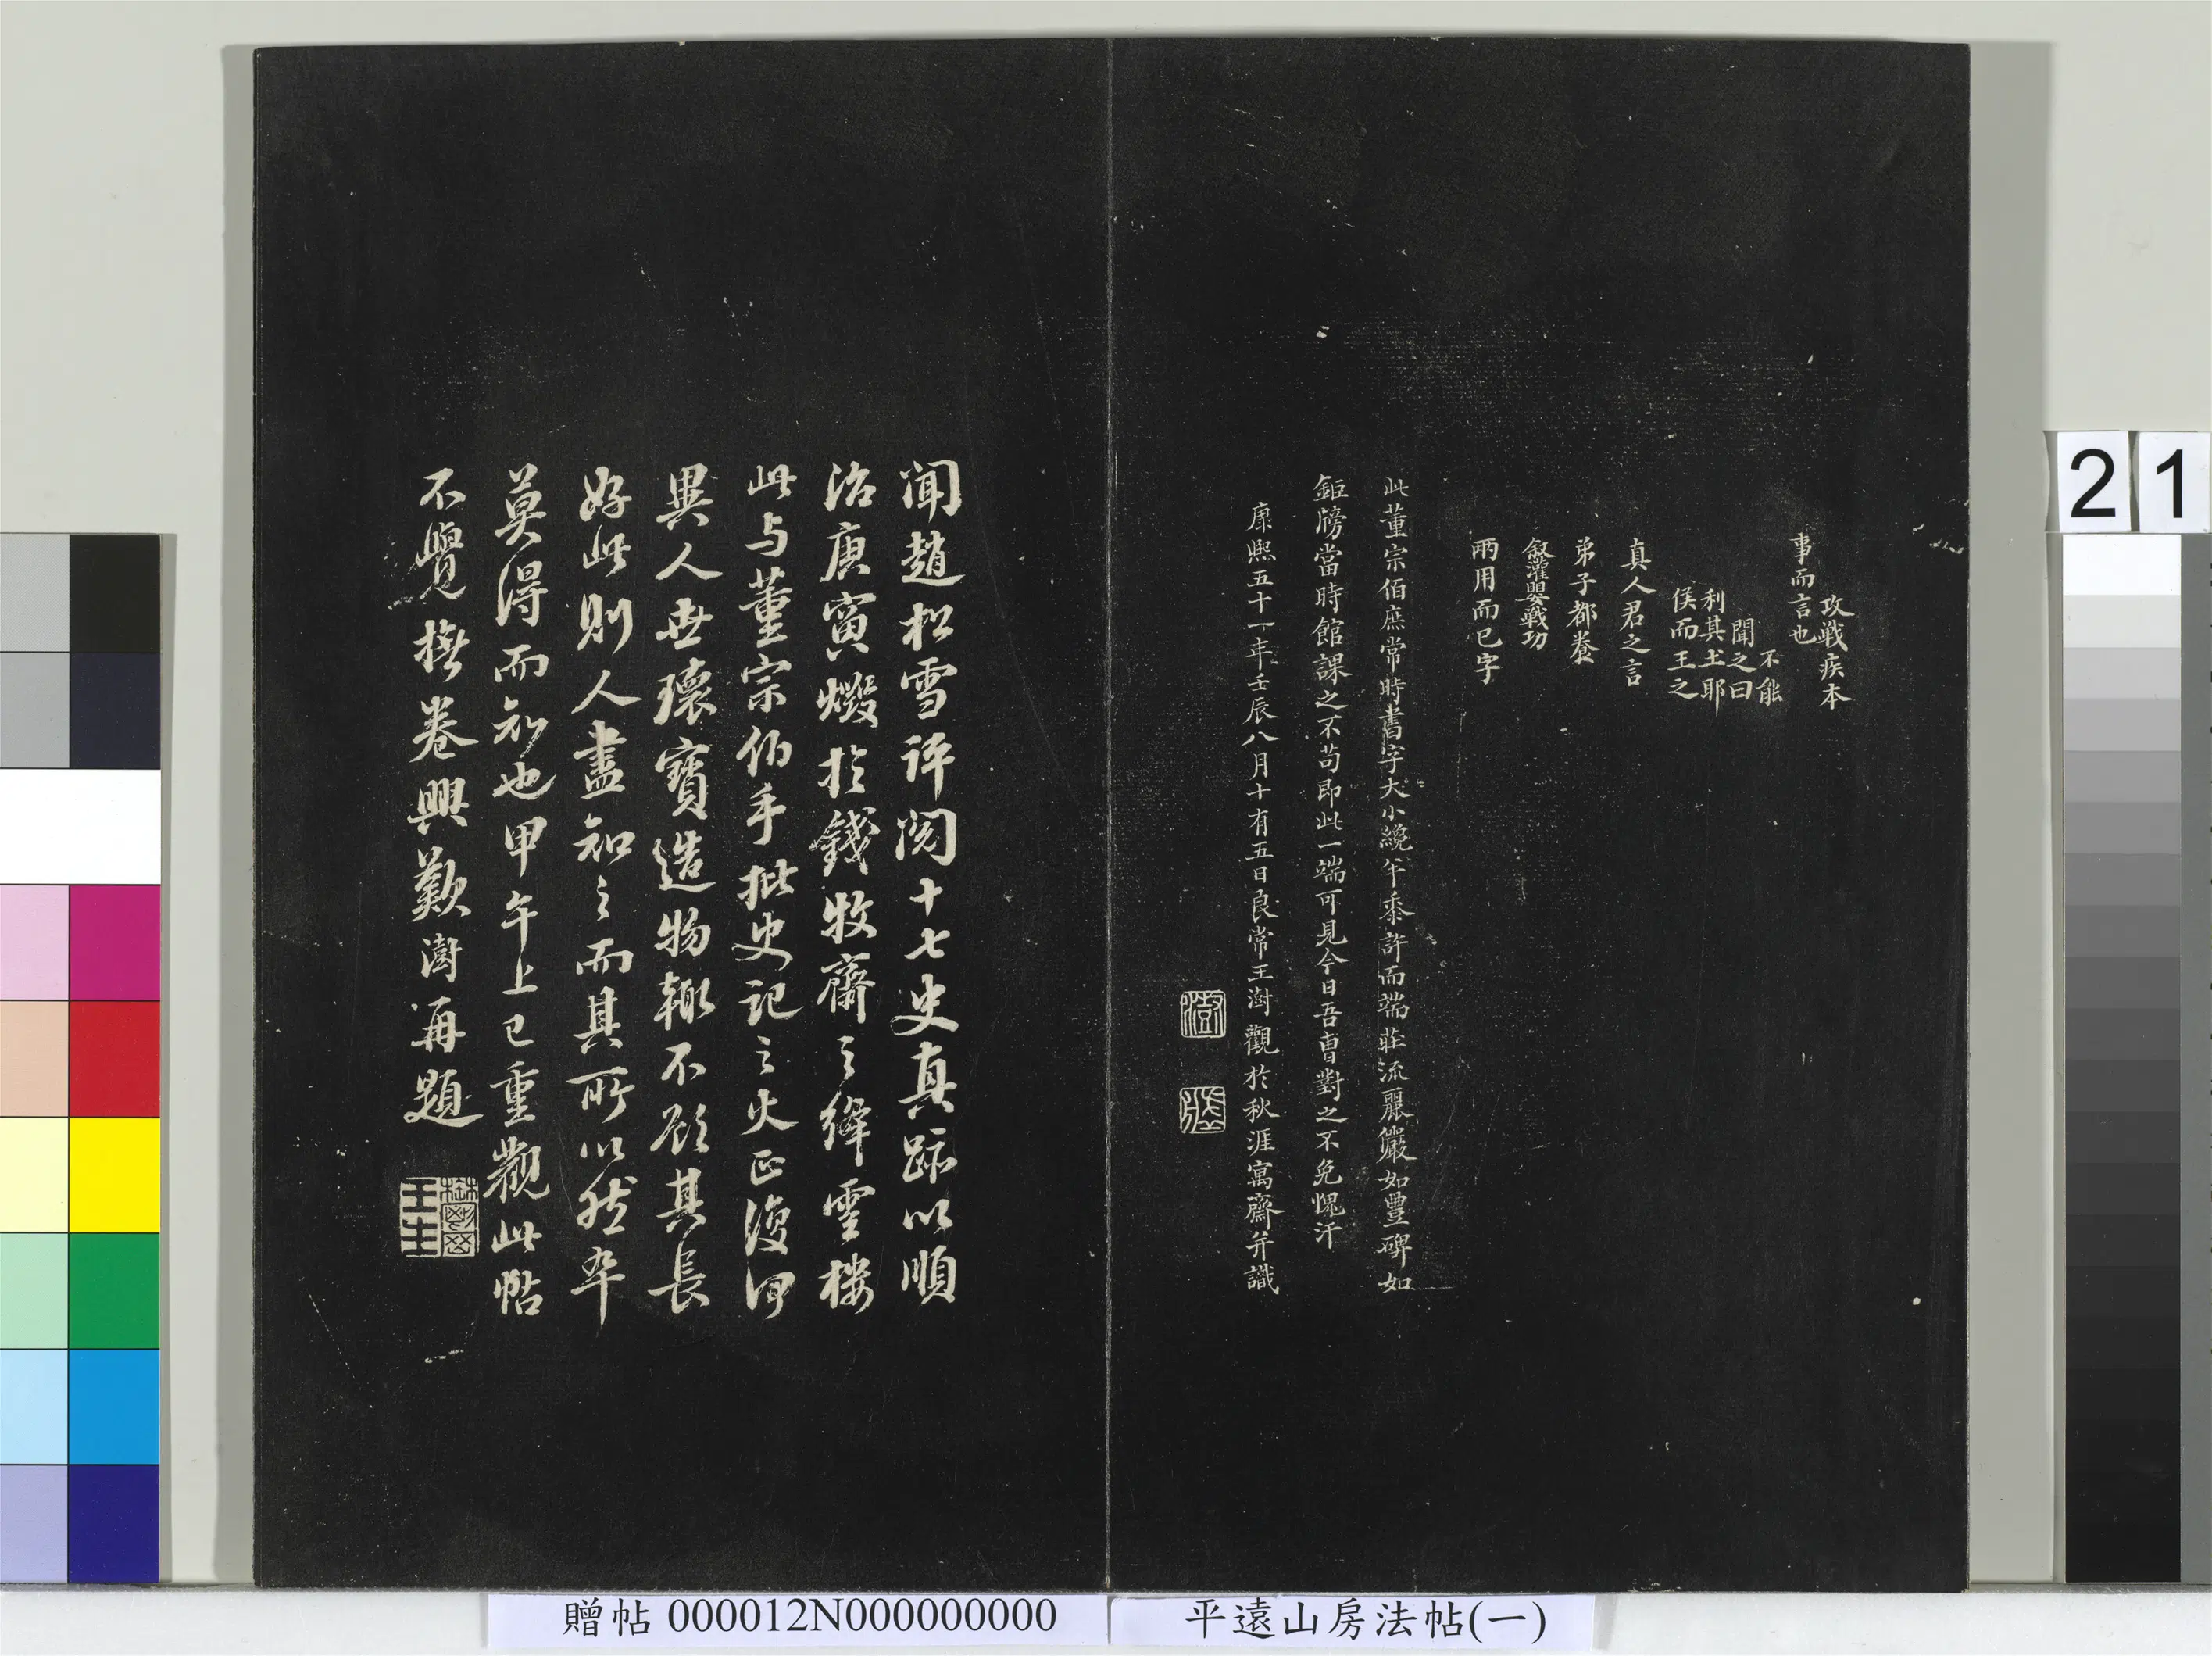 攻戰疾本
事而言也
不能
聞之曰
利其土耶
侯而王之
真人君之言
弟子都養
叙灌嬰戰功
兩用而已字
此董宗伯庶常時書字大小纔半黍許而端莊流麗儼如豐碑如
鉅牓當時館課之不苟即此一端可見今日吾曹對之不免愧汗
康熙五十一年壬辰八月十有五日良常王澍觀於秋涯寓齋并識
聞趙松雪評閱十七史真跡以順
治庚寅燬於錢牧齋之絳雲樓
此与董宗伯手批史記之火正復何
異人世瓌寶造物輙不欲其長
好此則人盡知之而其所以然卒
莫得而知也甲午上巳重觀此帖
不覺撫卷興歎澍再題
贈帖 000012N000000000
平遠山房法帖(一)
21